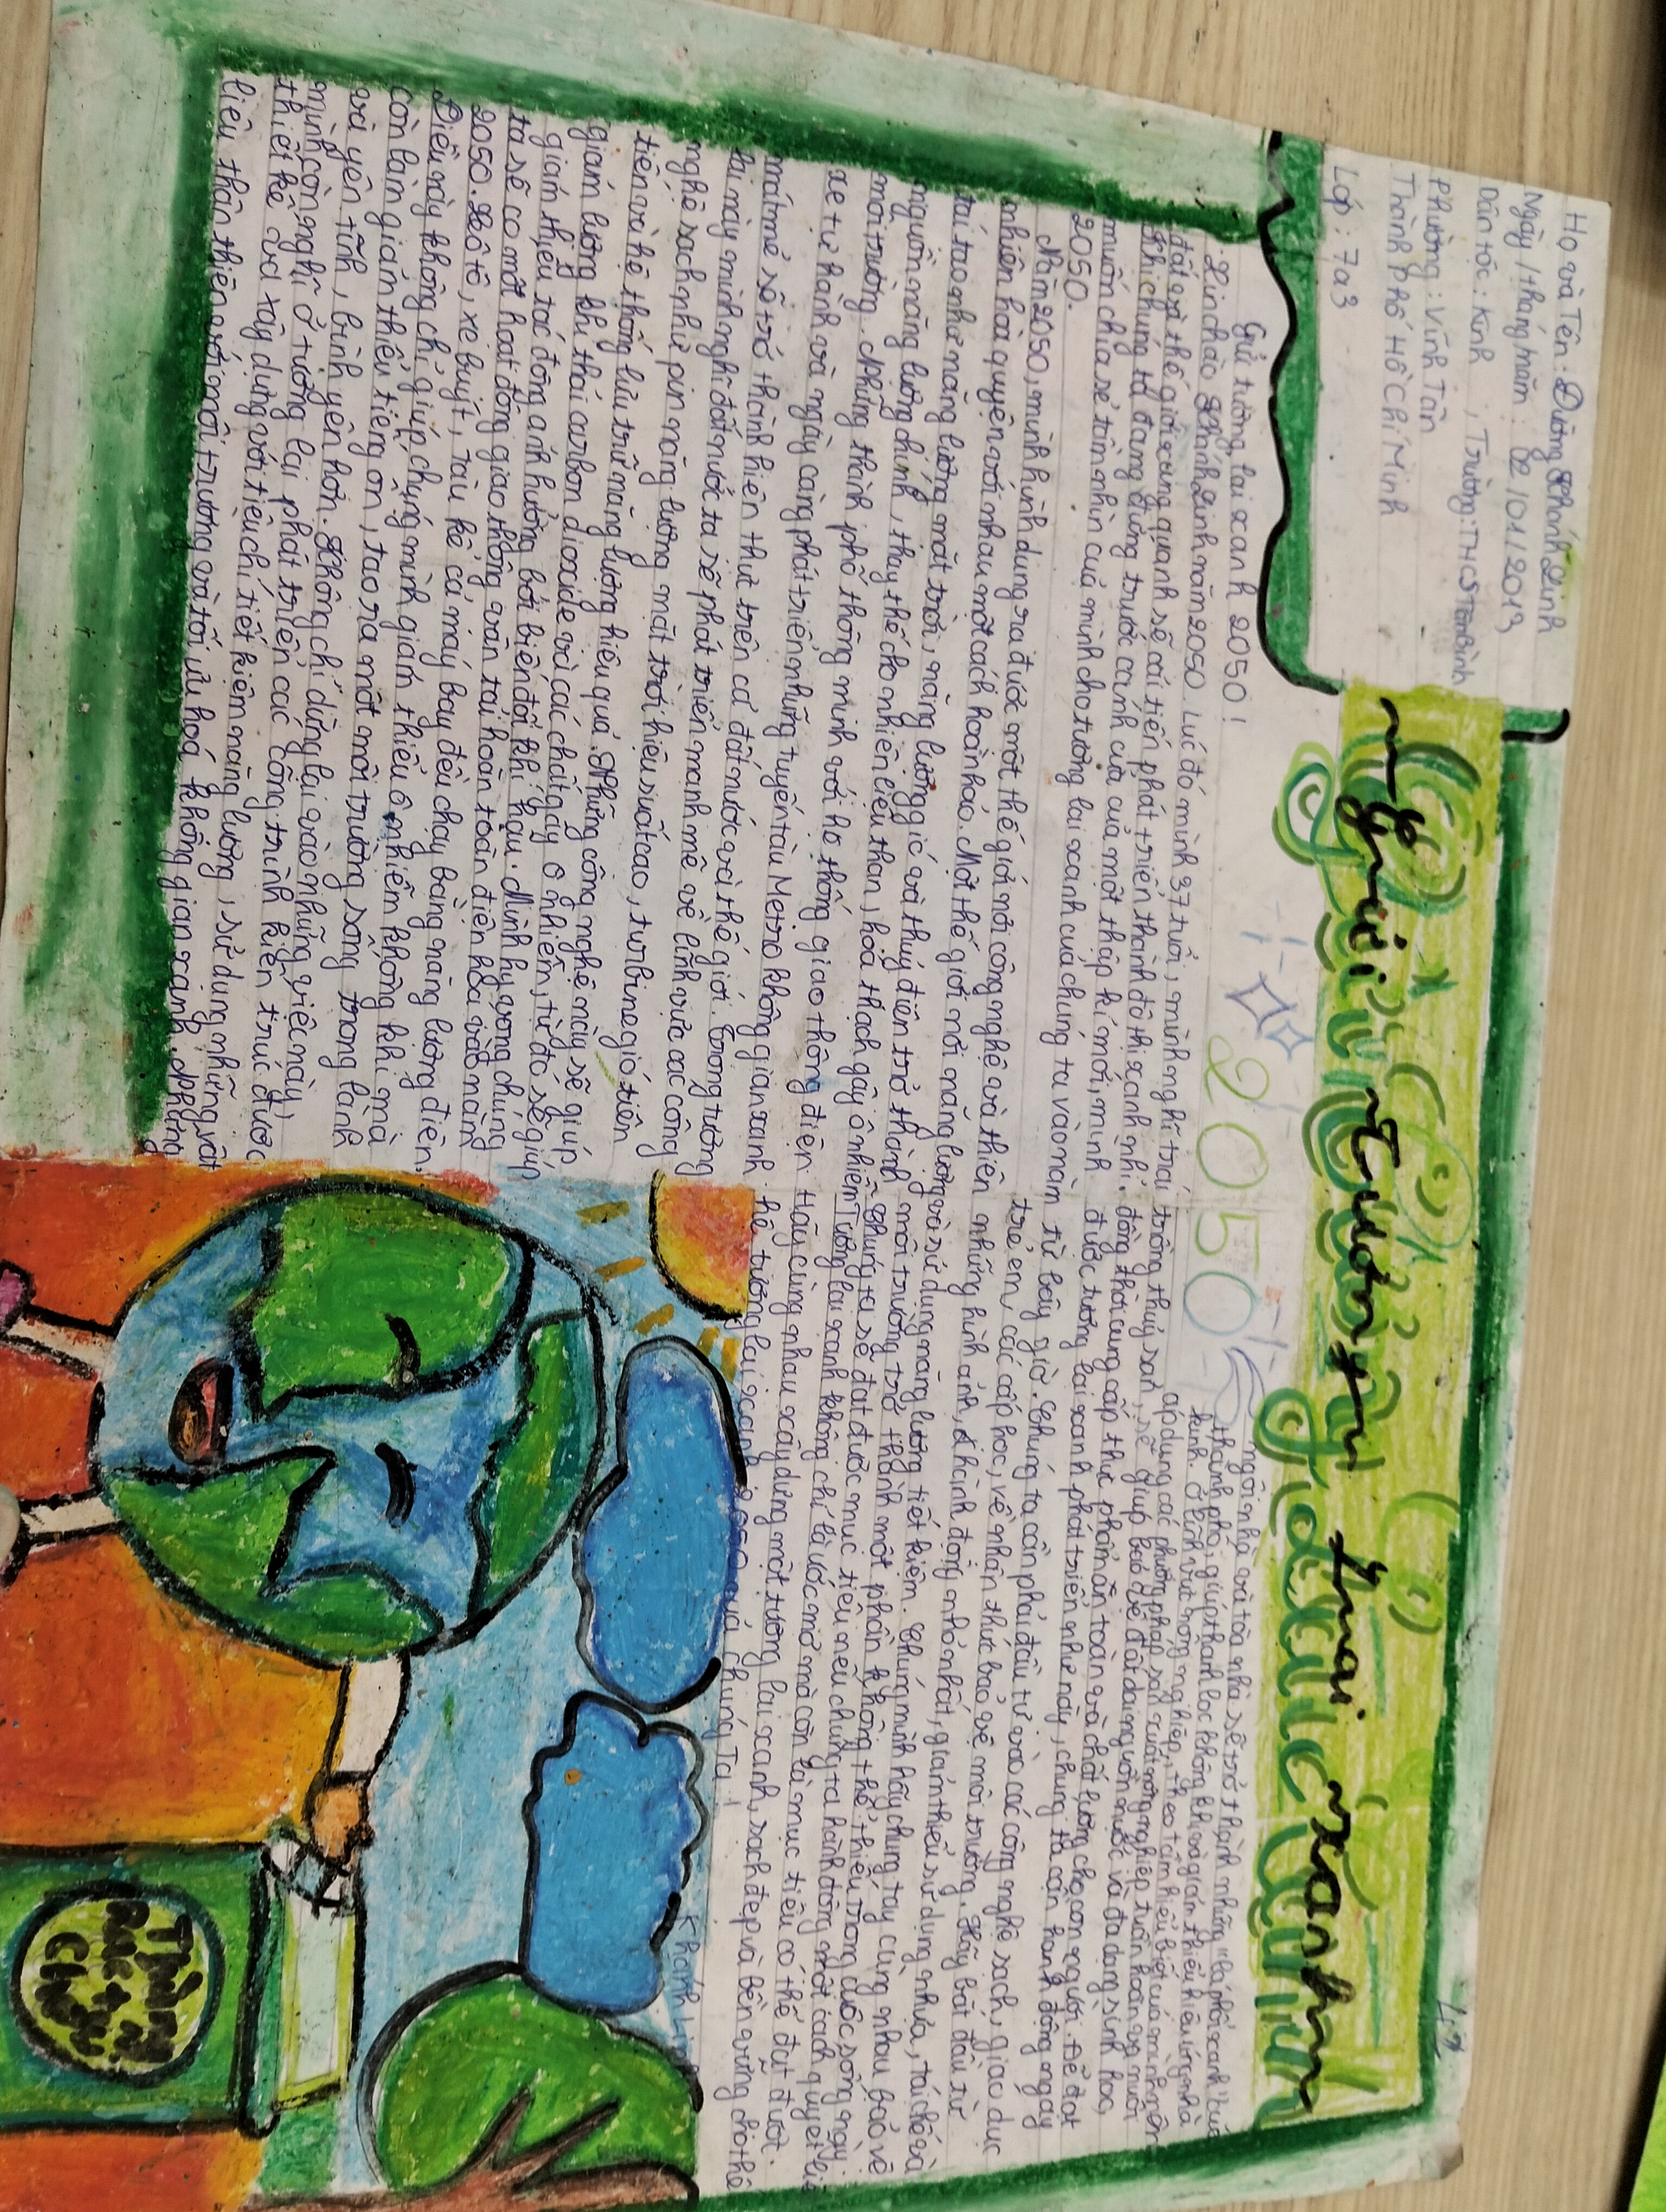 Họ và Tên: Dương Khánh Linh
Ngày / tháng năm: 02/01/2013
Dân tộc: Kinh , Trường: THCS Tân Bình
Phường: Vĩnh Tân
Thành Phố Hồ Chí Minh
Lớp: 7a3
Người Tuổi trẻ tương lai xanh
2050
Gửi tương lai xanh 2050!
Xin chào Khánh Linh năm 2050. Lúc đó mình 37 tuổi, mình nghĩ trái
đất và thế giới xung quanh sẽ cải tiến phát triển thành đô thị xanh nhỉ.
Khi chúng ta đang đứng trước cánh cửa của một thập kỉ mới, mình
muốn chia sẻ tầm nhìn của mình cho tương lai xanh của chúng ta vào năm
2050.
Năm 2050, mình hình dung ra được một thế giới nơi công nghệ và thiên
nhiên hòa quyện với nhau một cách hoàn hảo. Một thế giới nơi năng lượng
tái tạo như năng lượng mặt trời, năng lượng gió và thuỷ điện trở thành
nguồn năng lượng chính, thay thế cho nhiên liệu than, hóa thạch gây ô nhiễm
môi trường. Những thành phố thông minh với hệ thống giao thông điện
xe tự hành và ngày càng phát triển những tuyến tàu Metro không gian xanh
mát mẻ sẽ trở thành hiện thực trên cả đất nước và thế giới. Trong tương
lai này mình nghĩ đất nước ta sẽ phát triển mạnh mẽ về lĩnh vực các công
nghệ sạch như pin năng lượng mặt trời hiệu suất cao, turbine gió tiên
tiến và hệ thống lưu trữ năng lượng hiệu quả. Những công nghệ này sẽ giúp
giảm lượng khí thải carbon dioxide và các chất gây ô nhiễm, từ đó sẽ giúp
giảm thiểu tác động ảnh hưởng bởi biến đổi khí hậu. Mình hy vọng chúng
ta sẽ có một hoạt động giao thông vận tải hoàn toàn điện hóa vào năng
2050. Xe ô tô, xe buýt, tàu kể cả máy bay đều chạy bằng năng lượng điện.
Điều này không chỉ giúp chúng mình giảm thiểu ô nhiễm không khí mà
còn làm giảm thiểu tiếng ồn, tạo ra một môi trường sống trong lành
và yên tĩnh, bình yên hơn. Không chỉ dừng lại vào những việc này,
mình còn nghĩ ở tương lai phát triển các công trình kiến trúc được
thiết kế và xây dựng với tiêu chí tiết kiệm năng lượng, sử dụng những vật
liệu thân thiện với môi trường và tối ưu hoá không gian xanh. Những
ngôi nhà và tòa nhà sẽ trở thành những "lá phổi xanh" của
thành phố, giúp thanh lọc không khí và giảm thiểu hiệu ứng nhà
kính. Ở lĩnh vực nông nghiệp, theo tầm hiểu biết của mình nên
áp dụng các phương pháp sản xuất nông nghiệp tuần hoàn và nuôi
trồng thuỷ sản, sẽ giúp bảo vệ đất đai nguồn nước và đa dạng sinh học,
đồng thời cung cấp thực phẩm an toàn và chất lượng cho con người. Để đạt
được tương lai xanh phát triển như này, chúng ta cần hành động ngay
từ bây giờ. Chúng ta cần phải đầu tư vào các công nghệ sạch, giáo dục
trẻ em, các cấp học, về nhận thức bảo vệ môi trường. Hãy bắt đầu từ
những hình ảnh, hành động nhỏ nhất, giảm thiểu sử dụng nhựa, tái chế và
và sử dụng năng lượng tiết kiệm. Chúng mình hãy chung tay cùng nhau bảo vệ
môi trường trở thành một phần không thể thiếu trong cuộc sống ngày.
Chúng ta sẽ đạt được mục tiêu nếu chúng ta hành động một cách quyết liệt
Tương lai xanh không chỉ là ước mơ mà còn là mục tiêu có thể đạt được.
Hãy cùng nhau xây dựng một tương lai xanh, sạch đẹp và bền vững cho thế
hệ tương lai xanh 2050 của chúng Ta!
Khánh Linh
Thùng
Rác tái
Chế